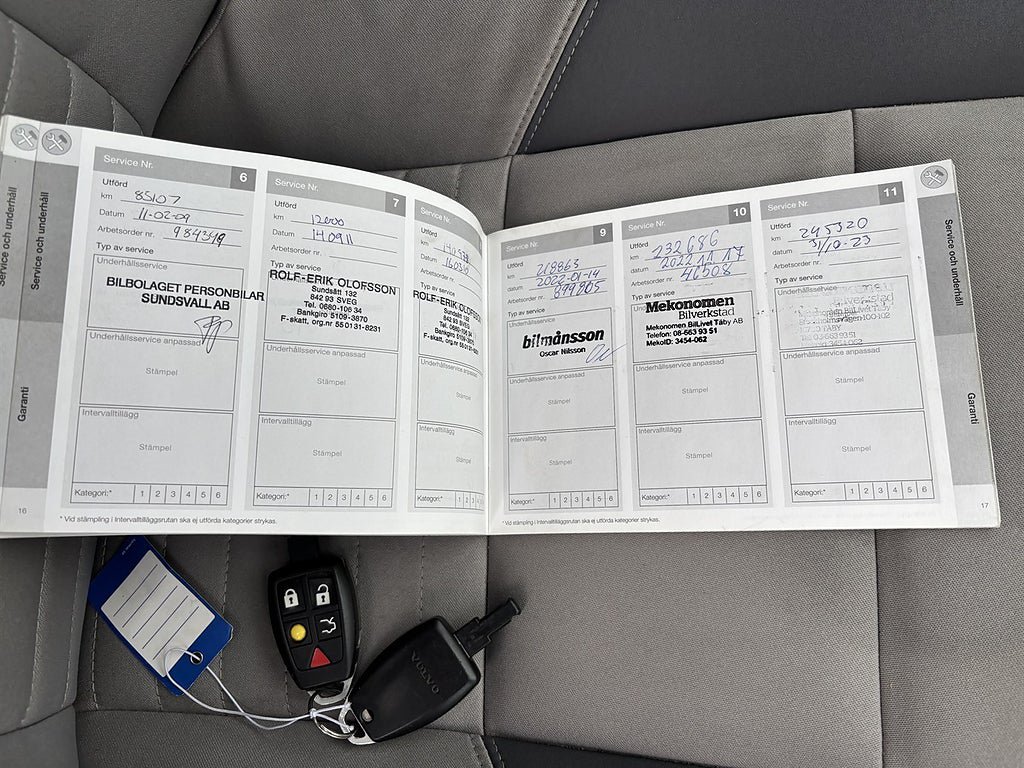 Service och underhåll
Service och underhåll
Garanti
Service Nr. 6
Utförd
km 85107
Datum 11-02-09
Arbetsorder nr. 984349
Typ av service
Underhållsservice
BILBOLAGET PERSONBILAR
SUNDSVALL AB
Underhållsservice anpassad
Stämpel
Intervalltillägg
Stämpel
Kategori:* 1 2 3 4 5 6
16
* Vid stämpling i Intervalltilläggsrutan ska ej utförda kategorier strykas.
Service Nr. 7
Utförd
km
Datum 140911
Arbetsorder nr.
Typ av service
ROLF-ERIK OLOFSSON
Sundsätt 132
842 93 SVEG
Tel. 0680-106 34
Bankgiro 5109-3870
F-skatt, org.nr 550131-8231
Underhållsservice anpassad
Stämpel
Intervalltillägg
Stämpel
Kategori:* 1 2 3 4 5 6
Service Nr.
Utförd
km
Datum
Arbetsorder
Typ av service
ROLF-ERIK OLOFSSON
Sundsätt 132
842 93 SVEG
Tel. 0680-106 34
Bankgiro 5109-3870
F-skatt, org.nr 550131-8231
Underhållsservice
Stämpel
Intervalltillägg
Stämpel
Kategori:* 1 2 3
9
Utförd
km 218863
datum 2022-01-14
Arbetsorder nr. 899805
Typ av service
Underhållsservice
bilmånsson
Oscar Nilsson
Underhållsservice anpassad
Stämpel
Intervalltillägg
Stämpel
Kategori:* 1 2 3 4 5 6
* Vid stämpling i Intervalltilläggsrutan ska ej utförda kategorier strykas.
Service Nr. 10
Utförd
km 232686
datum 2022 11 17
Arbetsorder nr. 46508
Typ av service
Mekonomen
Bilverkstad
Mekonomen BilLivet Täby AB
Telefon: 08-663 93 51
MekoID: 3454-062
Underhållsservice anpassad
Stämpel
Intervalltillägg
Stämpel
Kategori:* 1 2 3 4 5 6
Service Nr. 11
Utförd
km 245320
datum 31/10-23
Arbetsorder nr.
Typ av service
Underhållsservice
Underhållsservice anpassad
Stämpel
Intervalltillägg
Stämpel
Kategori:* 1 2 3 4 5 6
17
Service och underhåll
Garanti
VOLVO